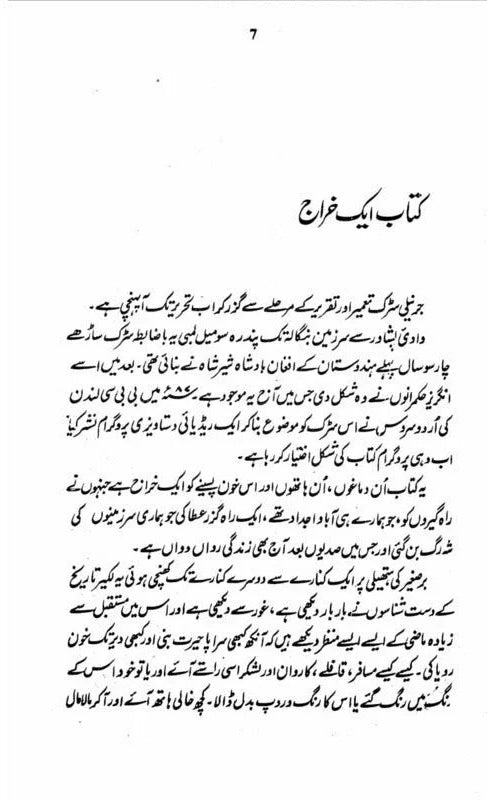 7
کتاب ایک خراج
جرنیلی سڑک تعمیر اور تقریر کے مرحلے سے گزر کر اب تحریر تک آ پہنچی ہے۔
وادیٔ پشاور سے سرزمین بنگالہ تک پندرہ سو میل لمبی یہ باضابطہ سڑک ساڑھے
چار سو سال پہلے ہندوستان کے افغان بادشاہ شیر شاہ نے بنائی تھی۔ بعد میں اسے
انگریز حکمرانوں نے وہ شکل دی جس میں آج یہ موجود ہے ۱۹۸۷ء میں بی بی سی لندن
کی اُردو سروس نے اس سڑک کو موضوع بنا کر ایک ریڈیائی دستاویزی پروگرام نشر کیا
اب وہی پروگرام کتاب کی شکل اختیار کر رہا ہے۔
یہ کتاب اُن دماغوں، اُن ہاتھوں اور اس خون پسینے کو ایک خراج ہے جنہوں نے
راہ گیروں کو، جو ہمارے ہی آباو اجداد تھے، ایک راہ گزر عطا کی جو ہماری سرزمینوں کی
شہ رگ بن گئی اور جس میں صدیوں بعد آج بھی زندگی رواں دواں ہے۔
برصغیر کی ہتھیلی پر ایک کنارے سے دوسرے کنارے تک کھنچی ہوئی یہ لکیر تاریخ
کے دست شناسوں نے بار بار دیکھی ہے، غور سے دیکھی ہے اور اس میں مستقبل سے
زیادہ ماضی کے ایسے ایسے منظر دیکھے ہیں کہ آنکھ کبھی سراپا حیرت بنی اور کبھی دیر تک خون
رویا کی۔ کیسے کیسے مسافر، قافلے، کاروان اور لشکر اسی راستے آئے اور یا تو خود اس کے
رنگ میں رنگ گئے یا اس کا رنگ و روپ بدل ڈالا۔ کچھ خالی ہاتھ آئے اور آ کر مالا مال